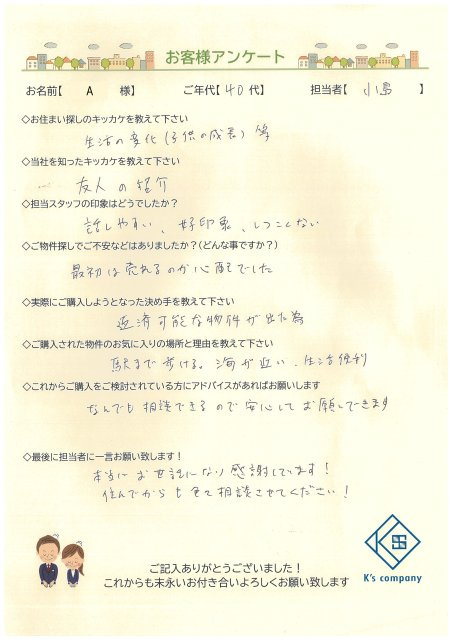 お客様アンケート
お名前【 A 様】 ご年代【 40代】 担当者【 小島 】
◇お住まい探しのキッカケを教えて下さい
生活の変化（子供の成長）等
◇当社を知ったキッカケを教えて下さい
友人の紹介
◇担当スタッフの印象はどうでしたか？
話しやすい、好印象、しつこくない
◇ご物件探しでご不安などはありましたか？（どんな事ですか？）
最初は売れるのか心配でした
◇実際にご購入しようとなった決め手を教えて下さい
返済可能な物件が出た為
◇ご購入された物件のお気に入りの場所と理由を教えて下さい
駅まで歩ける。海が近い、生活便利
◇これからご購入をご検討されている方にアドバイスがあればお願します
なんでも相談できるので安心してお願いできます
◇最後に担当者に一言お願い致します！
本当にお世話になり感謝しています！
住んでからも色々相談させてください！
K's company
ご記入ありがとうございました！
これからも末永いお付き合いよろしくお願い致します